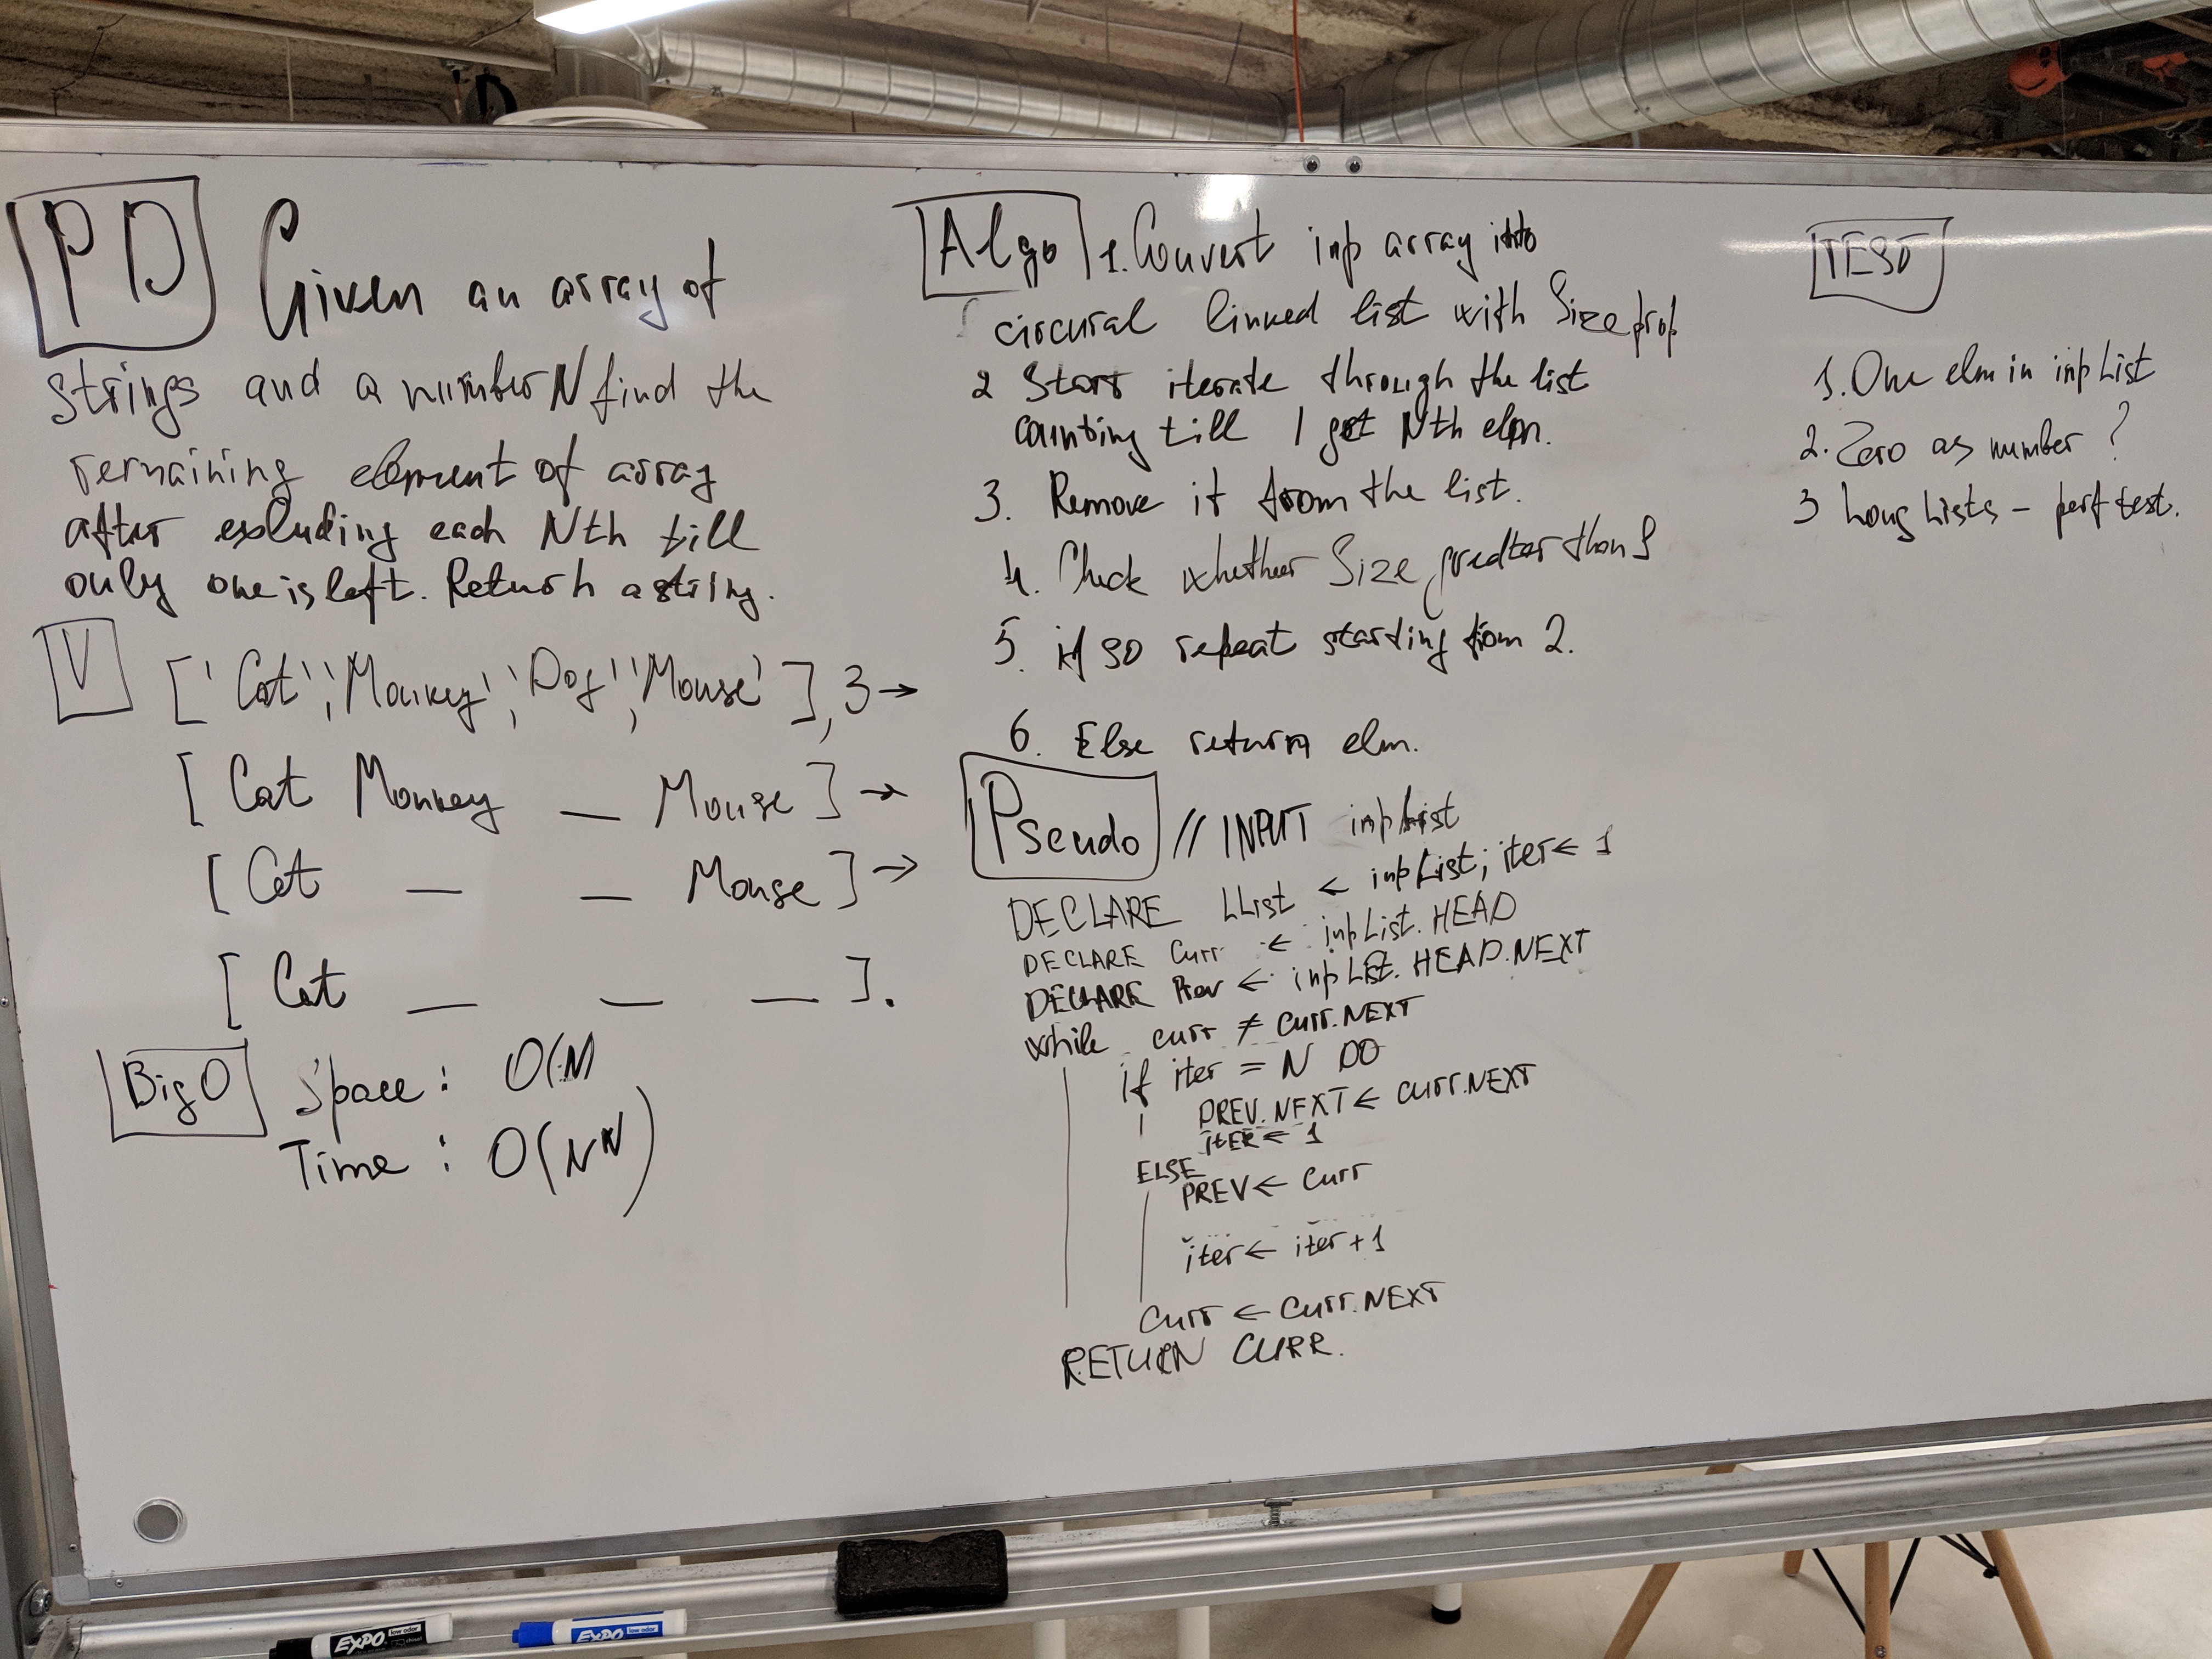 PD Given an array of
strings and a number N find the
remaining element of array
after excluding each Nth till
only one is left. Return a string.
V ['Cat','Monkey','Dog','Mouse'],3→
[Cat Monkey _ Mouse]→
[Cat _ _ Mouse]→
[Cat _ _ _].
BigO Space: O(N)
Time: O(N^N)
Algo 1. Convert inp array into
circural linked list with Size prop
2 Start iterate through the list
counting till I get Nth elm.
3. Remove it from the list.
4. Check whether Size greater than 1
5. if so repeat starting from 2.
6. Else return elm.
Pseudo // INPUT inpList
DECLARE LList ← inpList; iter ← 1
DECLARE Curr ← inpList.HEAD
DECLARE Prev ← inpList.HEAD.NEXT
while curr ≠ curr.NEXT
if iter = N DO
PREV.NEXT ← CURR.NEXT
ITER ← 1
ELSE
PREV ← Curr
iter ← iter + 1
Curr ← Curr.NEXT
RETURN CURR.
TEST
1. One elm in inpList
2. Zero as number?
3 Long Lists - perf test.
EXPO low odor
EXPO low odor